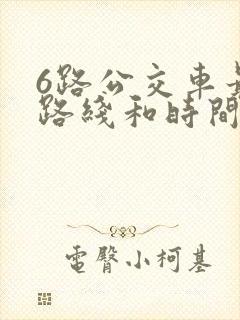 6路公交车
路綫和時間
電臀小柯基